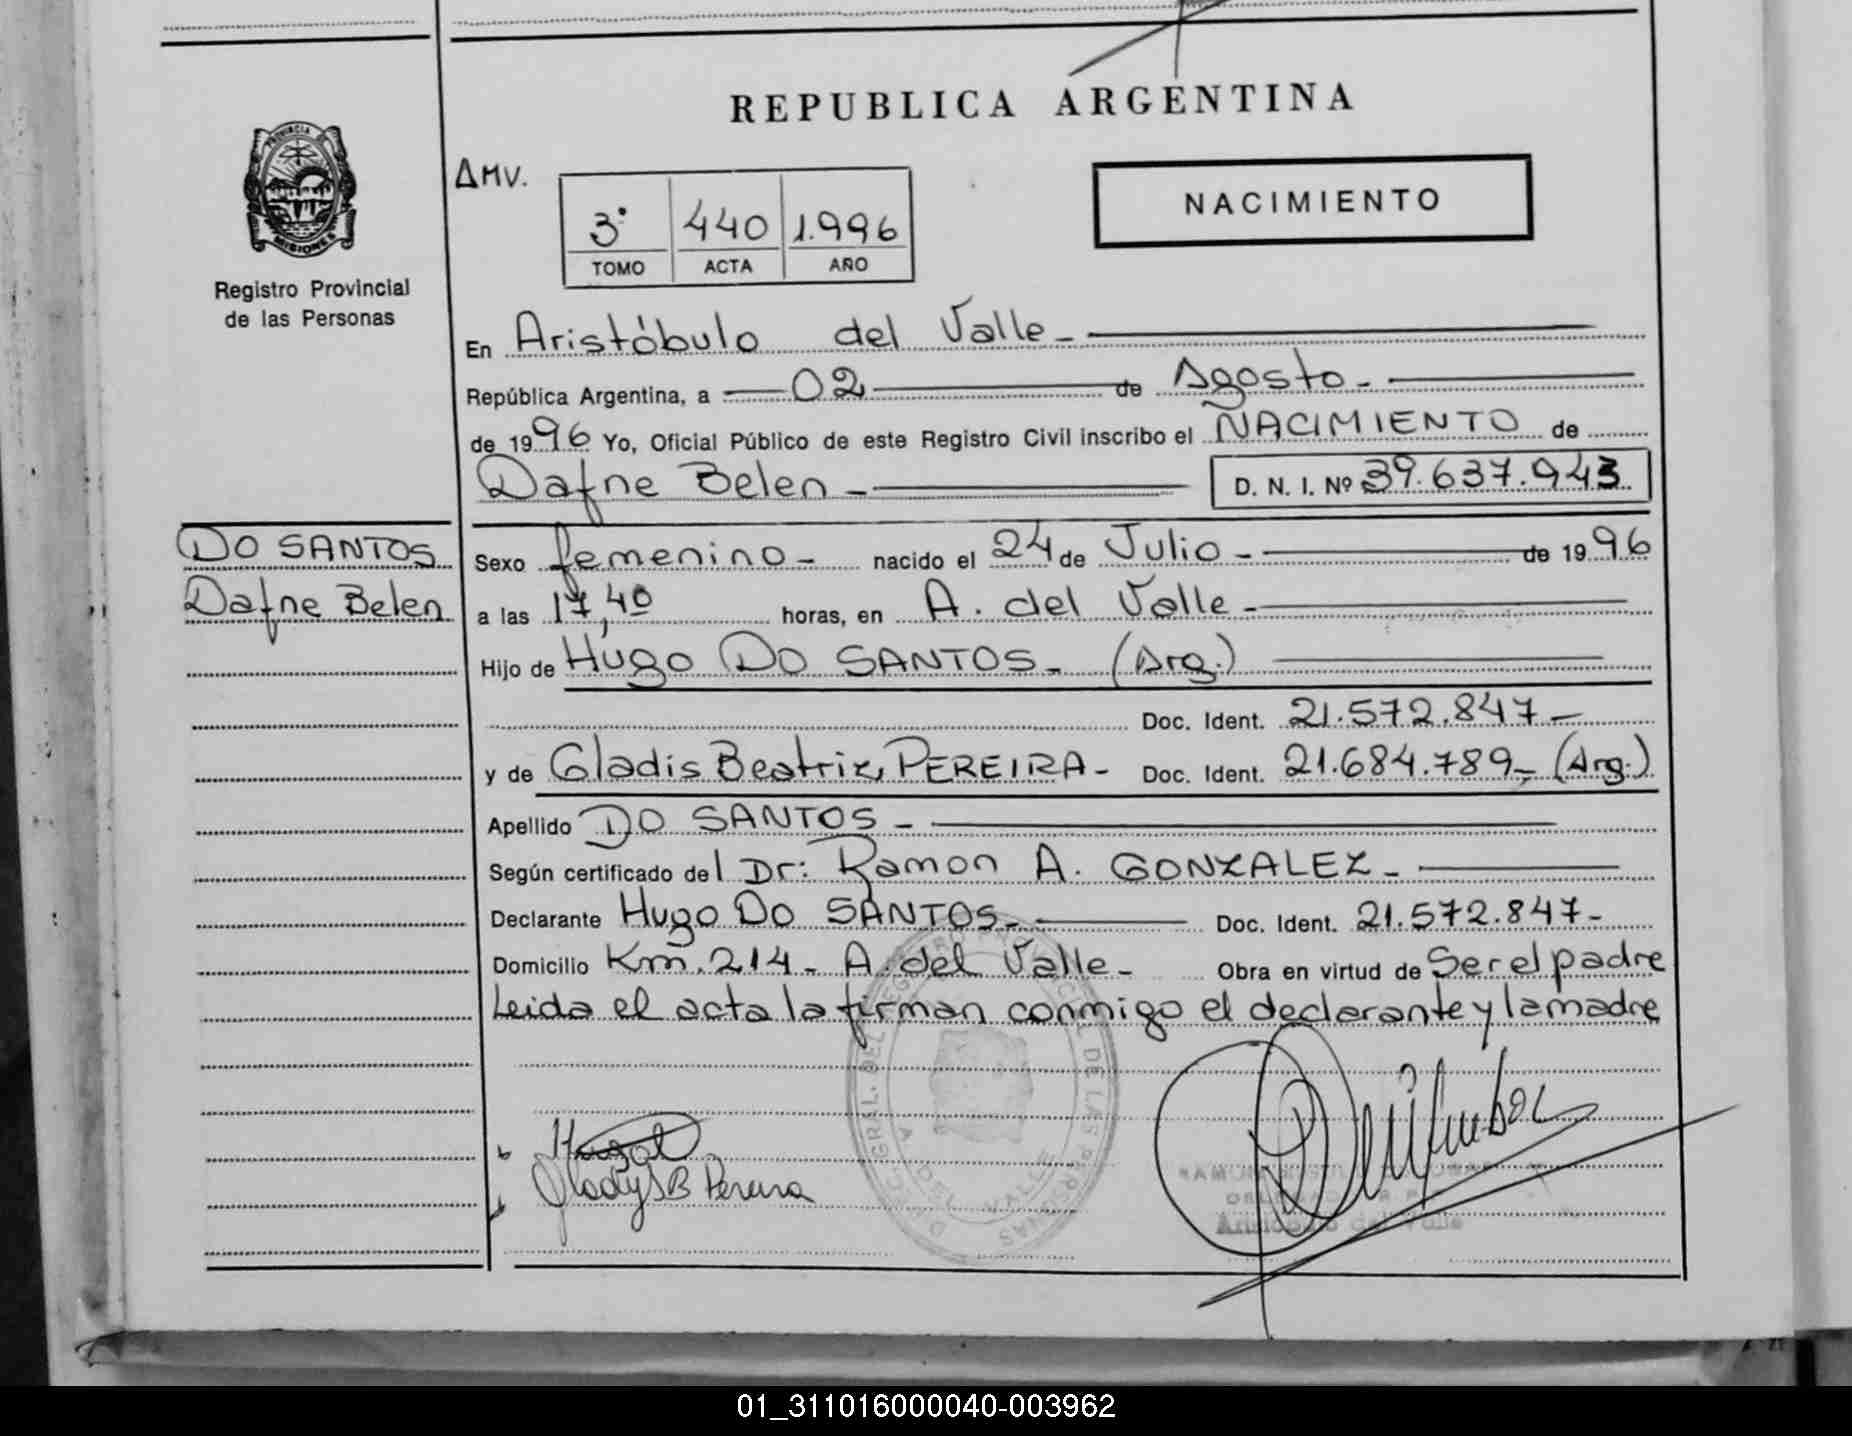 REPUBLICA ARGENTINA
PROVINCIA
MISIONES
Registro Provincial
de las Personas
AMV.
3° 440 1.996
TOMO ACTA AÑO
NACIMIENTO
En Aristóbulo del Valle-
República Argentina, a 02 de Agosto-
de 1996 Yo, Oficial Público de este Registro Civil inscribo el NACIMIENTO de
Dafne Belen- D. N. I. Nº 39.637.943
DO SANTOS
Dafne Belen
Sexo femenino- nacido el 24 de Julio- de 1996
a las 17,40 horas, en A. del Valle-
Hijo de Hugo DO SANTOS- (Arg.)
Doc. Ident. 21.572.847-
y de Gladis Beatriz PEREIRA- Doc. Ident. 21.684.789- (Arg.)
Apellido DO SANTOS-
Según certificado del Dr: Ramon A. GONZALEZ-
Declarante Hugo DO SANTOS- Doc. Ident. 21.572.847-
Domicilio Km. 214- A. del Valle- Obra en virtud de Ser el padre
Leida el acta la firman conmigo el declarante y la madre
GladyS B Pereira
DE LAS PERSONAS
A. DEL VALLE
Aristóbulo del Valle
01_311016000040-003962